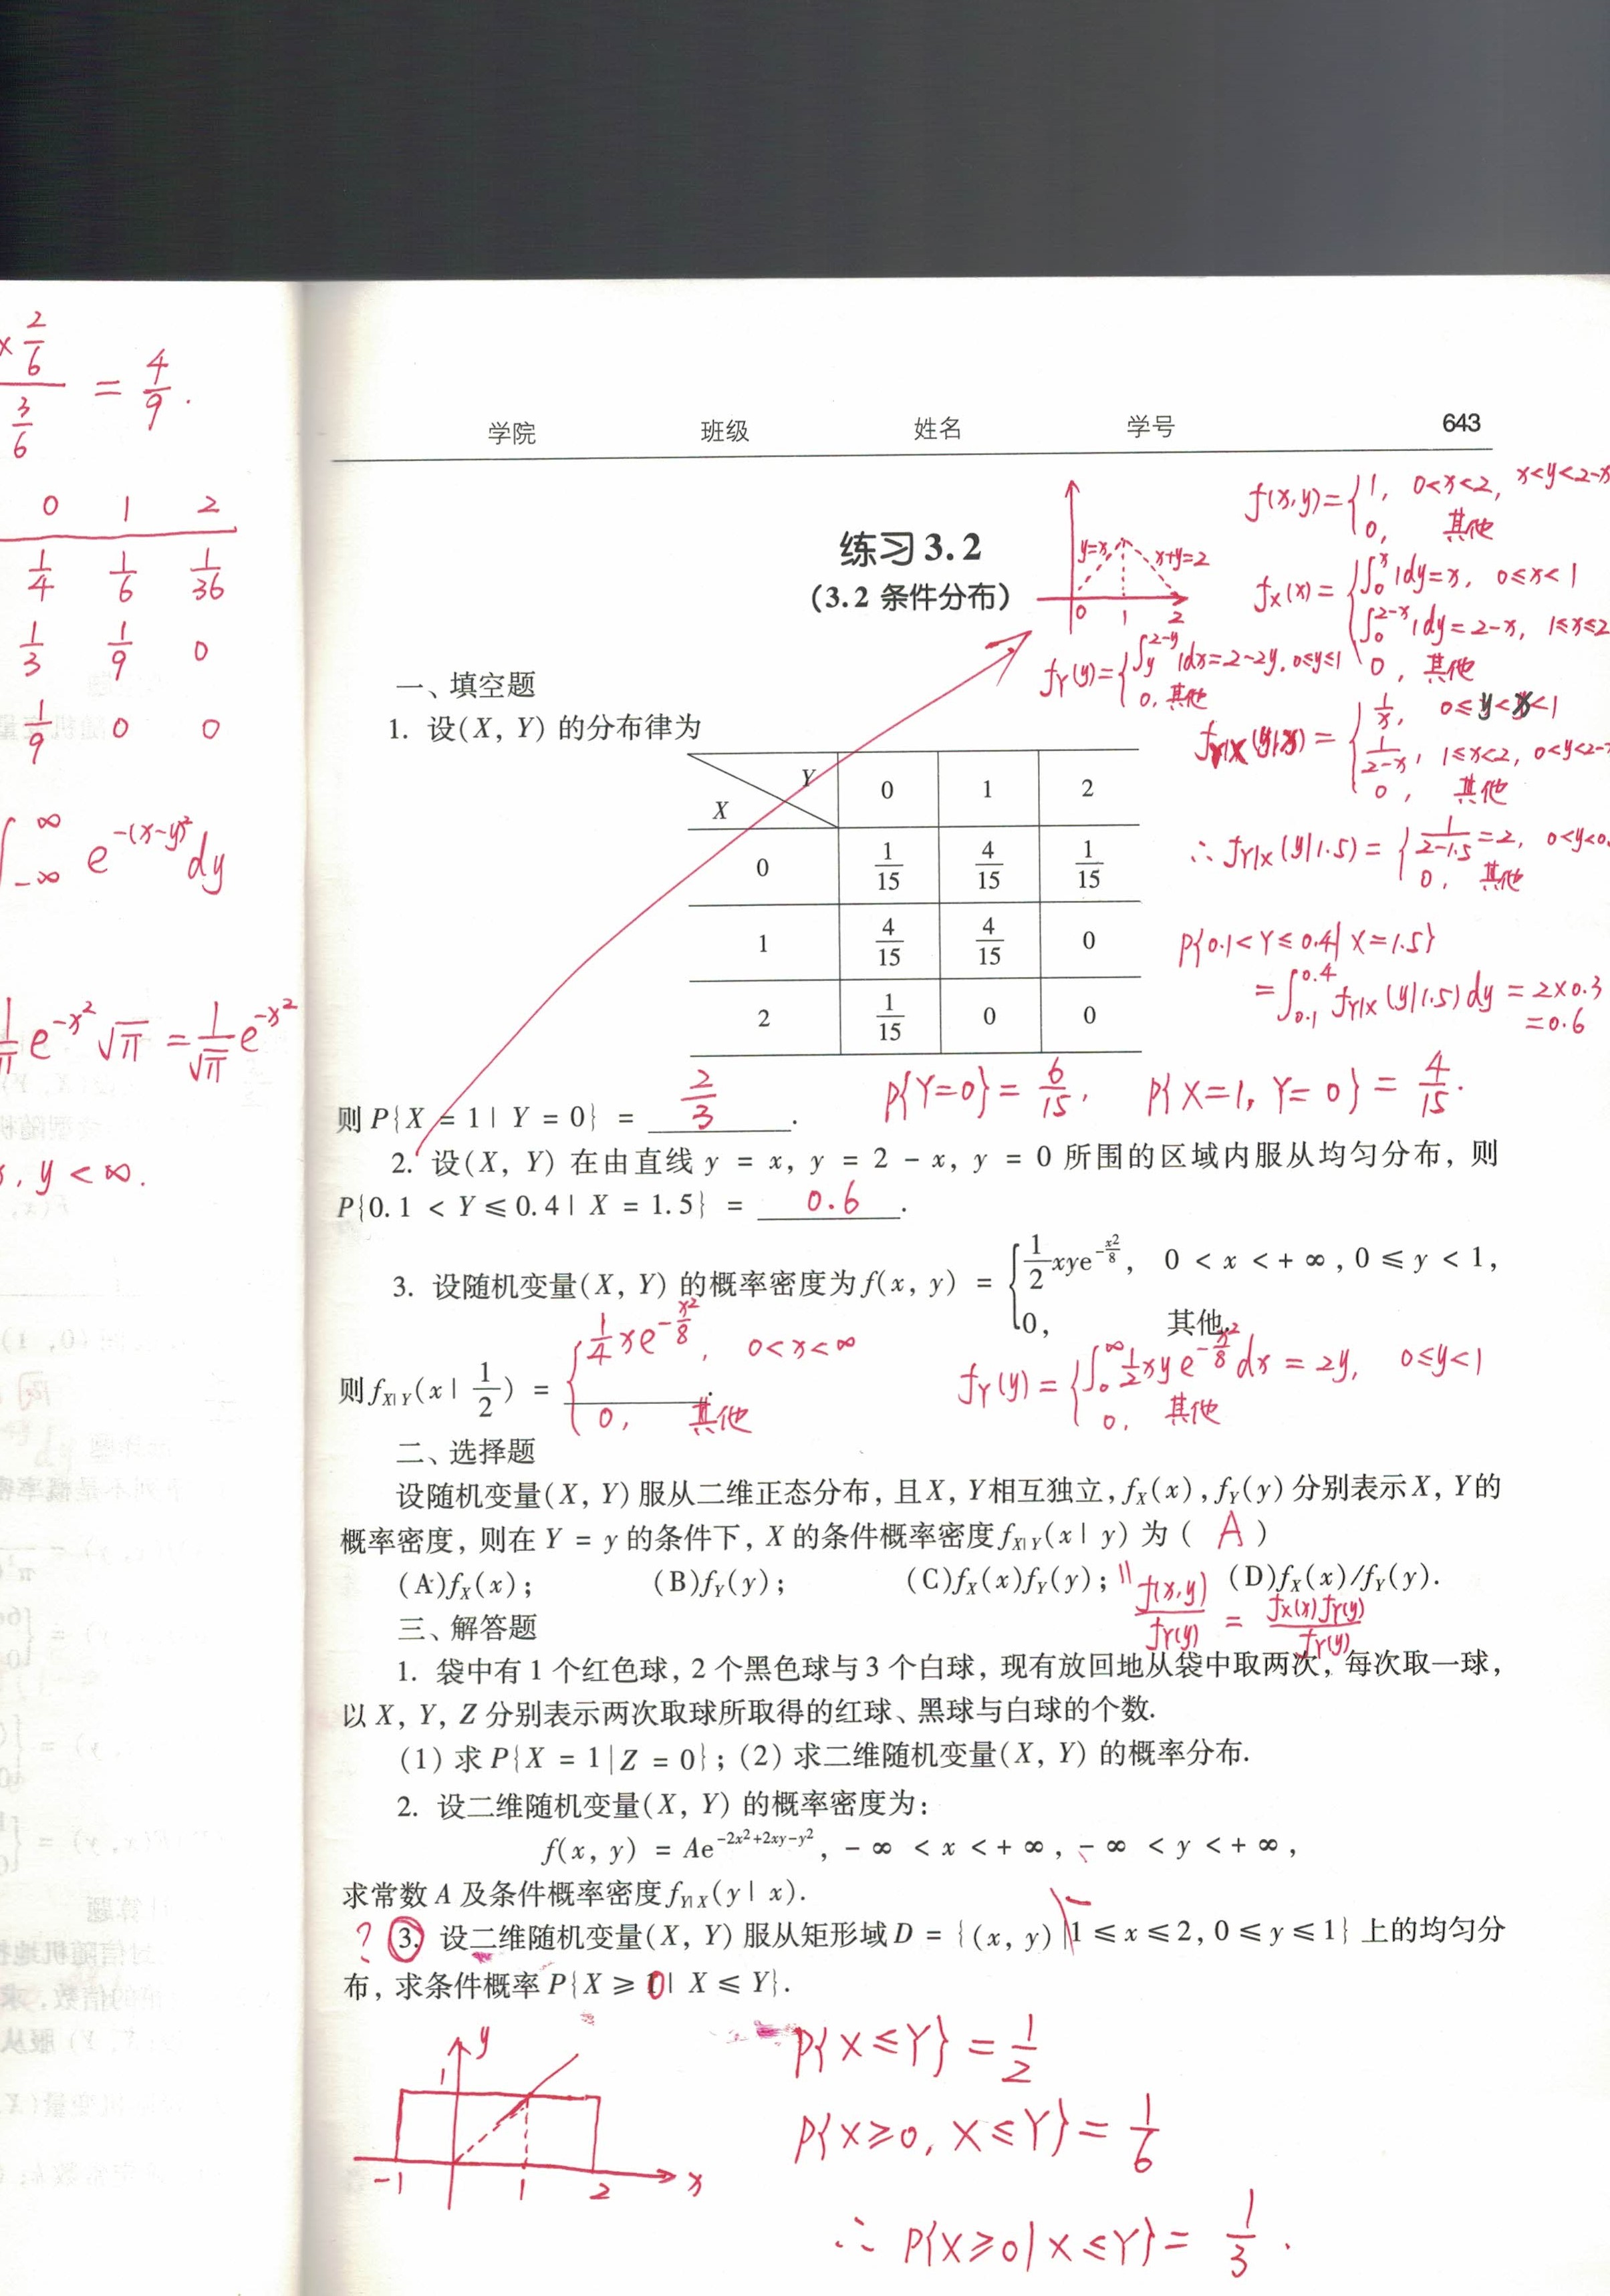 × 2/6
―― = 4/9 .
3/6
0 1 2
1/4 1/6 1/36
1/3 1/9 0
1/9 0 0
∫_{-∞}^{∞} e^{-(x-y)²}dy
e^{-x²}√π = 1/√π e^{-x²}
, y < ∞.
学院 班级 姓名 学号 643
练习3.2
(3.2 条件分布)
y=x x+y=2
0 1 2
f(x,y)={1, 0<x<2, x<y<2-x
0, 其他
f_X(x)={∫_0^x 1dy=x, 0≤x<1
∫_0^{2-x} 1dy=2-x, 1≤x≤2
0, 其他
f_Y(y)={∫_y^{2-y} 1dx=2-2y, 0≤y≤1
0, 其他
f_{Y|X}(y|x)={1/x, 0≤y<x<1
1/(2-x), 1≤x<2, 0<y<2-
0, 其他
∴ f_{Y|X}(y|1.5)={1/(2-1.5)=2, 0<y<0.
0, 其他
P{0.1<Y≤0.4|X=1.5}
=∫_{0.1}^{0.4} f_{Y|X}(y|1.5)dy=2×0.3
=0.6
一、填空题
1. 设(X, Y) 的分布律为
Y
X 0 1 2
0 1/15 4/15 1/15
1 4/15 4/15 0
2 1/15 0 0
则 P{X = 1 | Y = 0} = 2/3 . P{Y=0}=6/15, P{X=1, Y=0}=4/15.
2. 设(X, Y) 在由直线 y = x, y = 2 - x, y = 0 所围的区域内服从均匀分布, 则
P{0.1 < Y ≤ 0.4 | X = 1.5} = 0.6 .
3. 设随机变量(X, Y) 的概率密度为 f(x, y) = {1/2 xye^{-x²/8}, 0 < x < + ∞, 0 ≤ y < 1,
0, 其他.
则 f_{X|Y}(x | 1/2) = {1/4 xe^{-x²/8}, 0<x<∞ .
0, 其他
f_Y(y)={∫_0^∞ 1/2 xye^{-x²/8}dx=2y, 0≤y<1
0, 其他
二、选择题
设随机变量(X, Y) 服从二维正态分布, 且 X, Y 相互独立, f_X(x), f_Y(y) 分别表示 X, Y 的
概率密度, 则在 Y = y 的条件下, X 的条件概率密度 f_{X|Y}(x | y) 为 ( A )
(A)f_X(x); (B)f_Y(y); (C)f_X(x)f_Y(y); (D)f_X(x)/f_Y(y).
‖ f(x,y)/f_Y(y) = f_X(x)f_Y(y)/f_Y(y)
三、解答题
1. 袋中有 1 个红色球, 2 个黑色球与 3 个白球, 现有放回地从袋中取两次, 每次取一球,
以 X, Y, Z 分别表示两次取球所取得的红球、黑球与白球的个数.
(1) 求 P{X = 1|Z = 0}; (2) 求二维随机变量(X, Y) 的概率分布.
2. 设二维随机变量(X, Y) 的概率密度为:
f(x, y) = Ae^{-2x²+2xy-y²}, - ∞ < x < + ∞, - ∞ < y < + ∞,
求常数 A 及条件概率密度 f_{Y|X}(y | x).
? 3. 设二维随机变量(X, Y) 服从矩形域 D = {(x, y) |-1 ≤ x ≤ 2, 0 ≤ y ≤ 1} 上的均匀分
布, 求条件概率 P{X ≥ 0 | X ≤ Y}.
y
1
-1 1 2 x
P{X≤Y}=1/2
P{X≥0, X≤Y}=1/6
∴ P{X≥0|X≤Y}=1/3 .